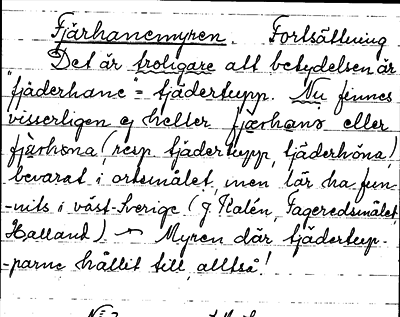 Fjärhanemyren. Fortsättning
Det är troligare att betydelsen är
"fjäderhane" = tjädertupp. Nu finnes
visserligen ej heller fjärhans eller
fjärhöna (resp tjädertupp, tjäderhöna)
bevarat i ortsmålet, men lär ha fun-
-nits i väst-Sverige (J Kalén, Fageredsmålet,
Halland) Myren där tjädertup-
-parne hållit till alltså!